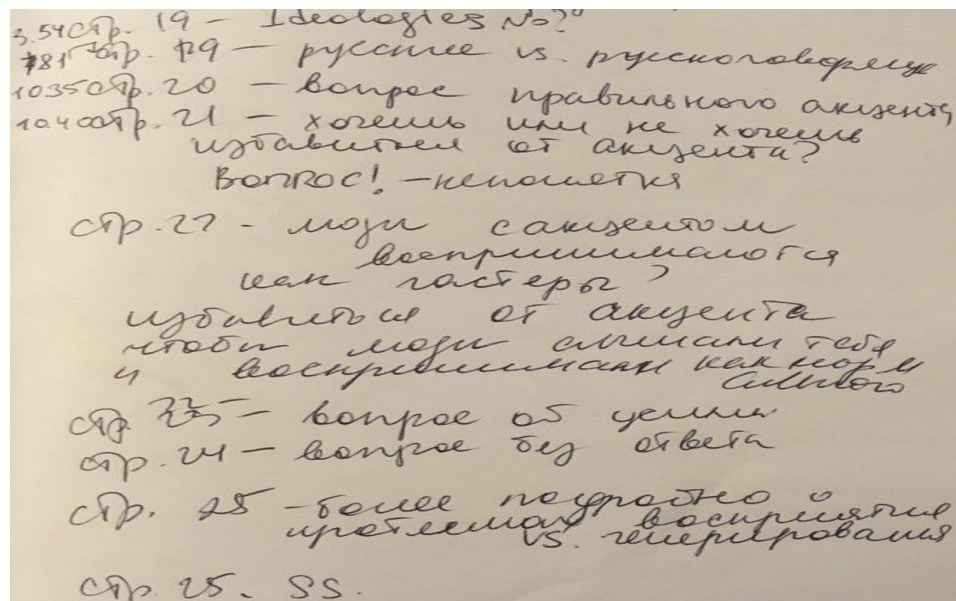 3.54 стр. 19 – Ideologies №?"
781 стр. 19 – русские vs. русскоговорящие
1035 стр. 20 – вопрос правильного акцента
10400 стр. 21 – хочешь или не хочешь
избавиться от акцента?
Вопрос! – непонятки
стр. 22 - люди с акцентом
воспринимаются
как гастеры?
избавиться от акцента
чтобы люди слышали тебя
и воспринимали как норм
стр. – вопрос об
стр. 24 – вопрос без ответа
стр. 25 – более подробно о
проблемах восприятие
vs. генерирования
стр. 25. SS.